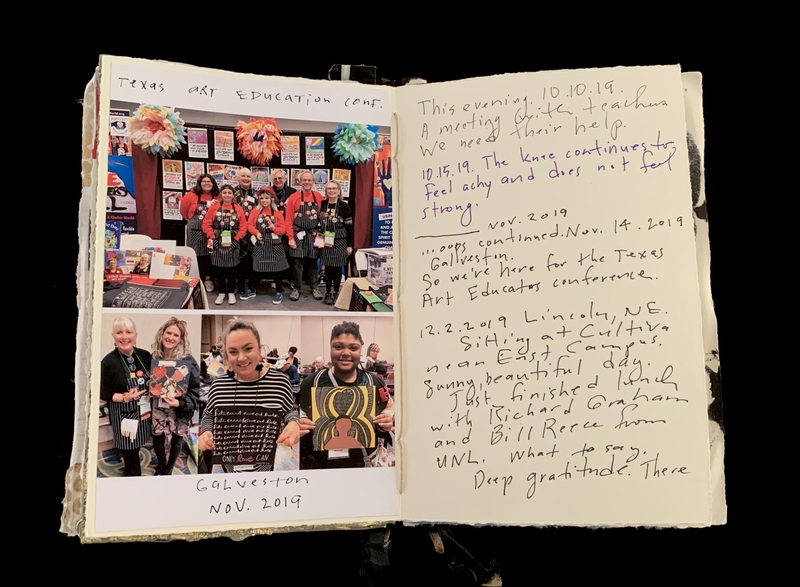 Texas Art Education Conf.
ONLY love CAN
Galveston
Nov. 2019
This evening. 10.10.19.
A meeting with teachers
We need their help.
10.15.19. The knee continues to
feel achy and does not feel
strong.
Nov. 2019
...oops continued. Nov. 14. 2019
Gallveston.
So we're here for the Texas
Art Educators conference.
12.2.2019 Lincoln, NE.
Sitting at Cultiva
near East Campus.
Sunny, beautiful day.
Just finished lunch
with Richard Graham
and Bill Reece from
UNL. What to say.
Deep gratitude. There